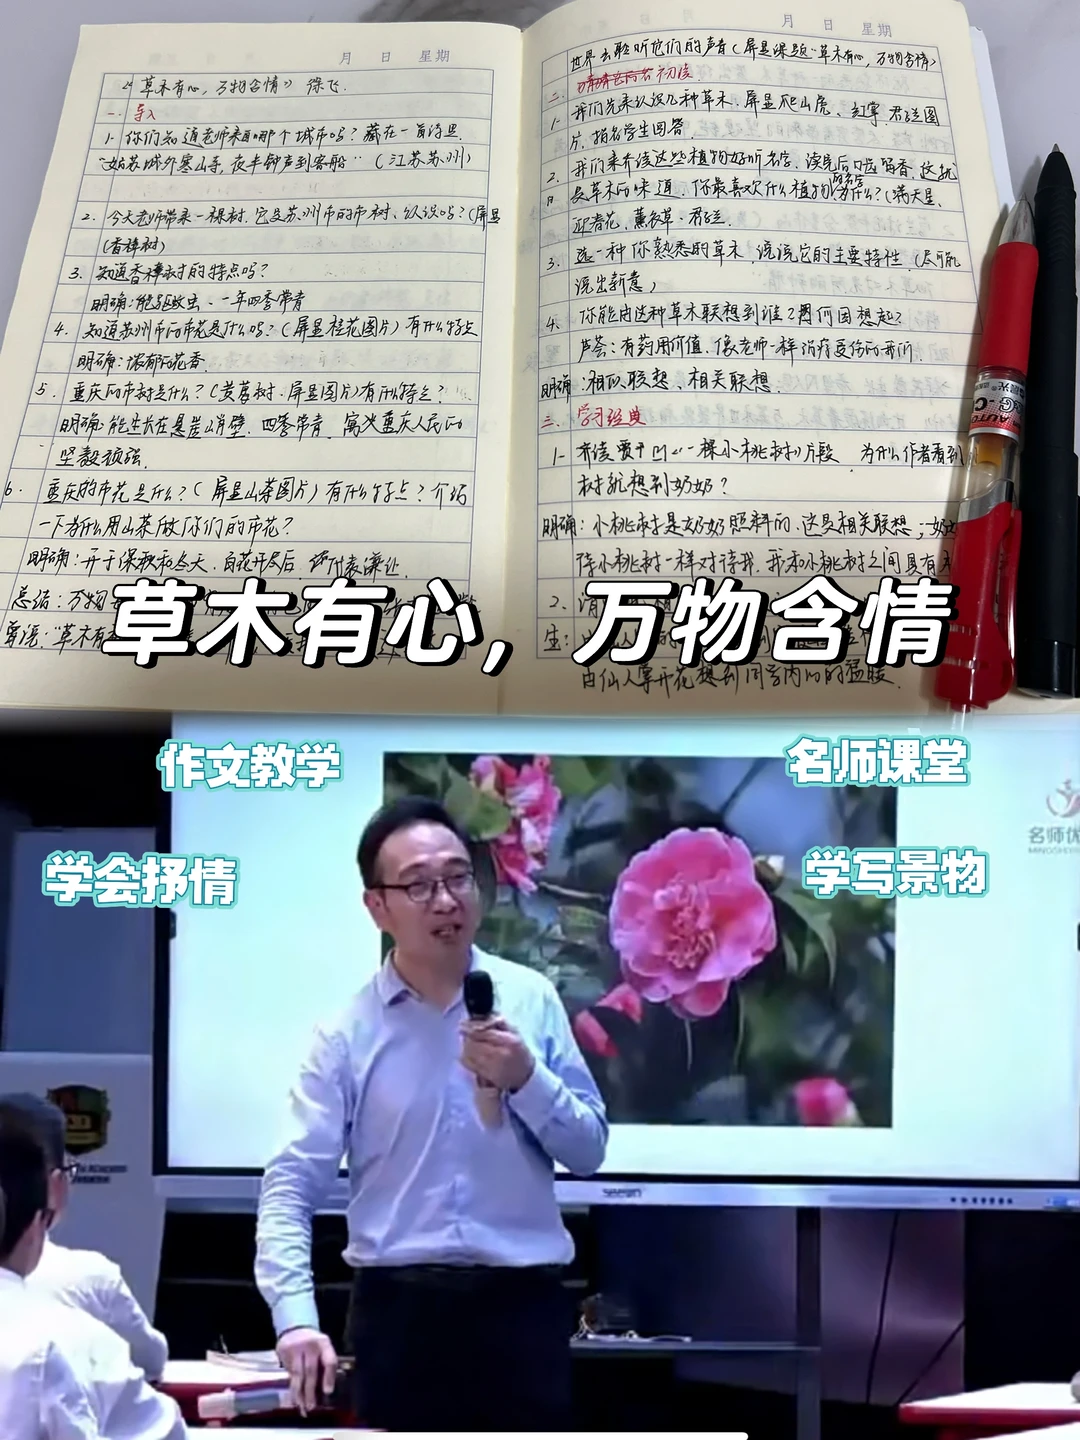 月 日 星期
《草木有心，万物含情》 徐飞
一. 导入
1. 你们知道老师来自哪个城市吗？藏在一首诗里.
“姑苏城外寒山寺，夜半钟声到客船”（江苏苏州）
2. 今天老师带来一棵树，它是苏州市的市树，认识吗？（屏显
（香樟树）
3. 知道香樟树的特点吗？
明确：能驱蚊虫、一年四季常青
4. 知道苏州市的市花是什么吗？（屏显桂花图片）有什么特点
明确：浓郁的花香.
5. 重庆的市树是什么？（黄葛树，屏显图片）有什么特点？
明确：能生长在悬崖峭壁，四季常青，寓为重庆人民的
坚毅顽强.
6. 重庆的市花是什么？（屏显山茶图片）有什么特点？介绍
一下为什么用山茶做你们的市花？
明确：开于深秋和冬天，百花开尽后，
总结：万物
导语：“草木有
月 日 星期
世界去聆听它们的声音（屏显课题“草木有心，万物含情》
二. 初读
1. 我们先来认识几种草木，屏显爬山虎、红掌、君子兰图
片，指名学生回答.
2. 我们来齐读这些植物好听名字，读完后口齿留香，这就
是草木的味道，你最喜欢什么植物的名字，为什么？（满天星、
迎春花，薰衣草，君子兰，
3. 选一种你熟悉的草木，说说它的主要特性.（尽可能
说出新意）
4. 你能由这种草木联想到谁？因何因想起？
芦荟：有药用价值，像老师一样治疗受伤的我们.
明确：相似联想、相关联想.
三. 学习经典
1. 齐读贾平凹《一棵小桃树》片段，为什么作者看到
树就想到奶奶？
明确：小桃树是奶奶照料的，这是相关联想；奶奶
待小桃树一样对待我，我和小桃树之间具有
2. 请
生：由仙人
由仙人掌开花想到同学内心的温暖.
草木有心，万物含情
作文教学
名师课堂
名师优
学会抒情
学写景物
seewo